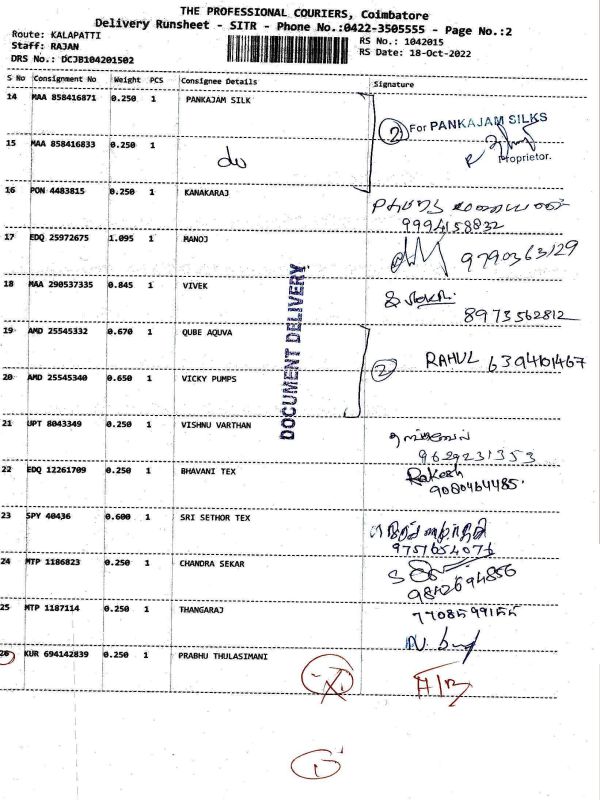 THE PROFESSIONAL COURIERS, Coimbatore
Delivery Runsheet - SITR - Phone No.:0422-3505555 - Page No.:2
Route: KALAPATTI
Staff: RAJAN
DRS No.: DCJB104201502
RS No.: 1042015
RS Date: 18-Oct-2022
S No Consignment No Weight PCS Consignee Details Signature
14 MAA 858416871 0.250 1 PANKAJAM SILK
2 For PANKAJAM SILKS
Proprietor.
15 MAA 858416833 0.250 1 do
16 PON 4483815 0.250 1 KANAKARAJ
9994158832
17 EDQ 25972675 1.095 1 MANOJ 9790363129
18 MAA 290537335 0.845 1 VIVEK
8973562812
DOCUMENT DELIVERY
19 AMD 25545332 0.670 1 QUBE AQUVA
2 RAHUL 6394101467
20 AMD 25545340 0.650 1 VICKY PUMPS
21 UPT 8043349 0.250 1 VISHNU VARTHAN
9629231353
22 EDQ 12261709 0.250 1 BHAVANI TEX Rakesh
9080464485
23 SPY 40436 0.600 1 SRI SETHOR TEX
9751654071
24 MTP 1186823 0.250 1 CHANDRA SEKAR
9842694856
25 MTP 1187114 0.250 1 THANGARAJ
26 KUR 694142839 0.250 1 PRABHU THULASIMANI